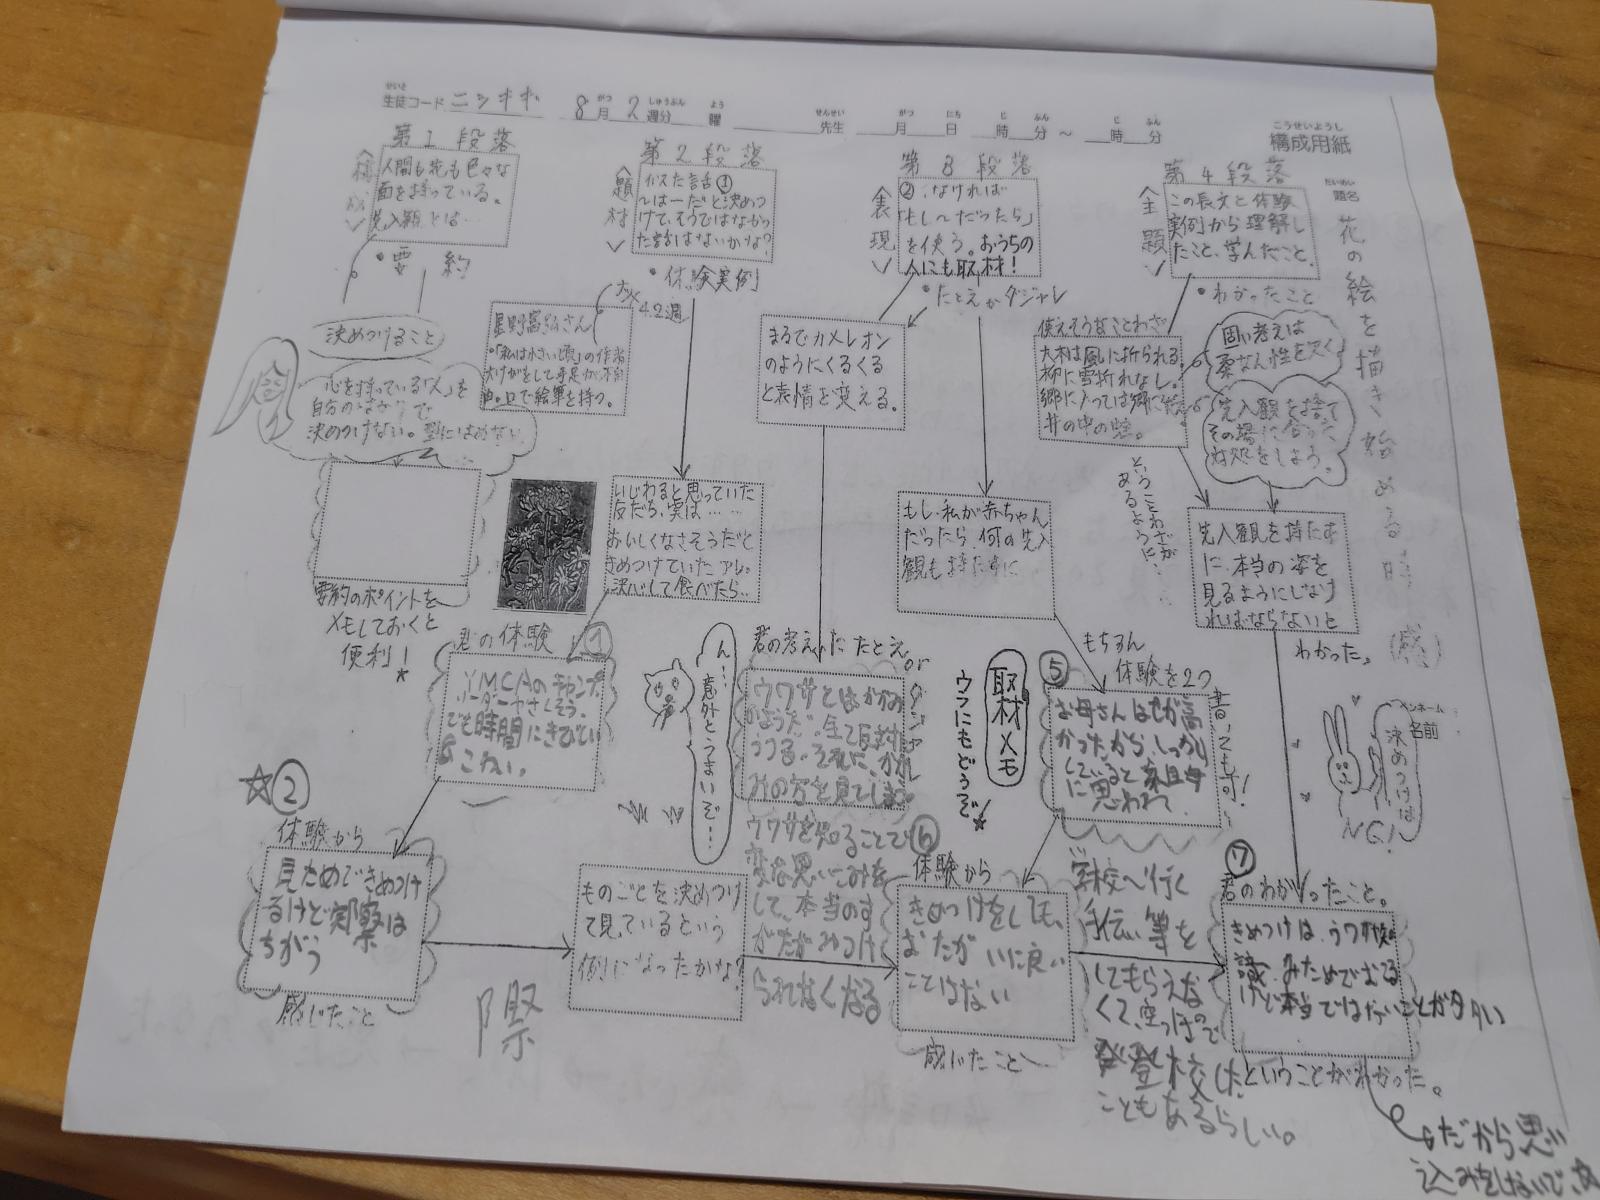 生徒コード ニシオギ 8月2週分 曜 先生 月 日 時 分 ～ 時 分
構成用紙
題名 花の絵を描き始める時 (感)
ペンネーム
名前
第1段落
＜構成＞
人間も花も色々な
面を持っている。
先入観とは…
・要約
決めつけること
心を持っている「人」を
自分の
決めつけない。型にはめない
要約のポイントを
メモしておくと
便利！
第2段落
＜題材＞
似た話①
～は一だと決めつ
けて、そうではなかっ
た話はないかな？
・体験実例
4.2週
星野富弘さん
・「私は小さい頃」の作者
大けがをして手足が不自
由。口で絵筆を持つ。
いじわると思っていた
友だち、実は……
おいしくなさそうだと
きめつけていたアレ。
決心して食べたら…
君の体験 ①
YMCAのキャンプ
リーダーやさしそう、
でも時間にきびしい
☆②
体験から
見ためできめつけ
るけど実際は
ちがう
感じたこと
際
ものごとを決めつけ
て見ているという
例になったかな？
第3段落
＜表現＞
②．なければ
「もし～だったら」
を使う。おうちの
人にも取材！
・たとえかダジャレ
まるでカメレオン
のようにくるくる
と表情を変える。
もし、私が赤ちゃん
だったら、何の先入
観も持たずに
君の考えたたとえorダジャレ
ん…意外とうまいぞ…
ウワサとはかがみ
のようだ。全て反対に
うつる。それに、かが
みの方を見てしまう。
ウワサを知ることで
変な思いこみを
して、本当のす
がたがみつけ
られなくなる
取材メモ
ウラにもどうぞ★
⑤
もちろん
体験を2つ
書いても可！
お母さんはせが高
かったから、しっかり
していると
に思われて
学校へ行く
手伝い等を
してもらえな
くて、空っぽので
登校した
こともあるらしい。
⑥
体験から
きめつけをしても、
おたがいに良い
ことはない
感じたこと
第4段落
＜主題＞
この長文と体験
実例から理解し
たこと、学んだこと。
・わかったこと
使えそうなことわざ
大木は風に折られる
柳に雪折れなし。
郷に入っては郷に従え
井の中の蛙。
ということわざが
あるように、…
固い考えは
柔なん性を欠く
先入観を捨て
その場に合った
対処をしよう。
先入観を持たず
に、本当の姿を
見るようにしなけ
ればならないと
わかった。
決めつけは
NG!
⑦
君のわかったこと。
きめつけは、ウワサや
みためでおこる
けど本当ではないことが多い
ということがわかった。
だから思い
込みをしないで、